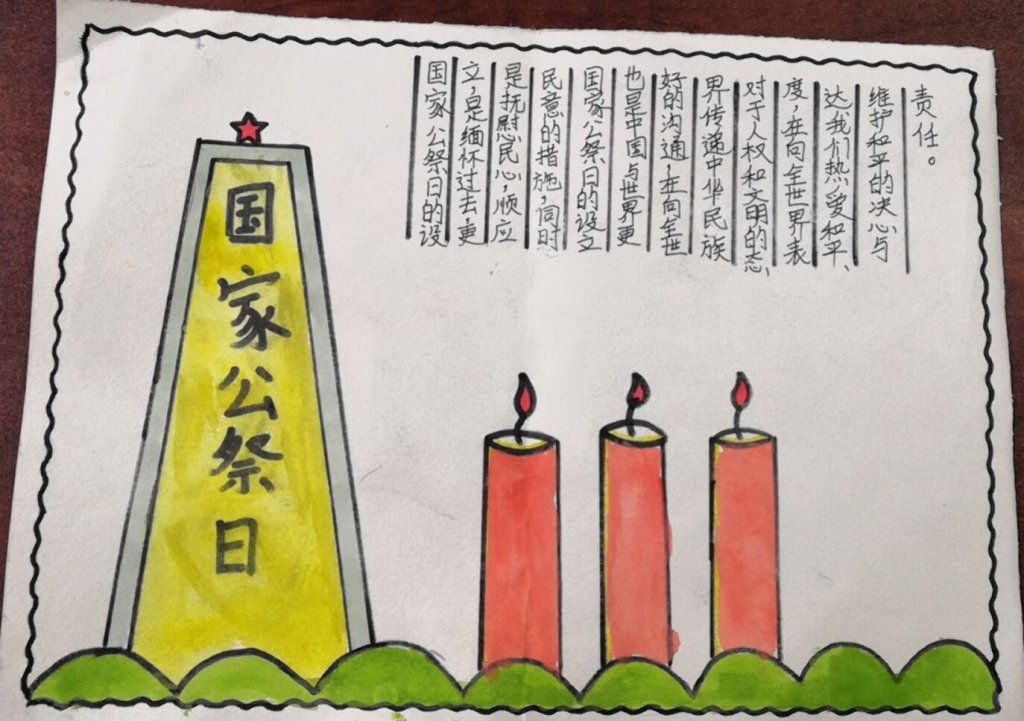 国家公祭日
国家公祭日的设
立，是缅怀过去，更
是抚慰民心，顺应
民意的措施，同时
国家公祭日的设立
也是中国与世界更
好的沟通，在向全世
界传递中华民族
对于人权和文明的态
度，在向全世界表
达我们热爱和平、
维护和平的决心与
责任。